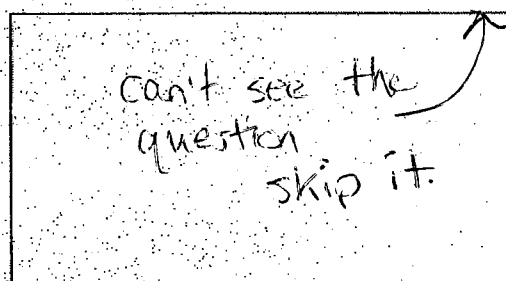 can't see the
question
skip it.